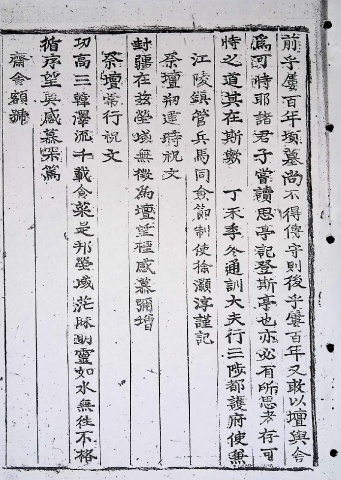 前乎屢百年墳墓尚不得傳守則後乎屢百年又敢以壇與舍
爲河時耶諸君子嘗讀思亭記登斯亭也亦必有所思者存可
恃之道其在斯歟 丁禾季冬通訓大夫行三陟都護府使兼
江陵鎭管兵馬同僉節制使徐灝淳謹記
祭壇刱建時祝文
封疆在玆塋域無徵爲壇望禋感慕彌增
祭壇常行祝文
功高三韓澤流千載食菜是邦塋域茫昧助靈如水無徃不格
循序望奠感慕罙篤
齋舍額號